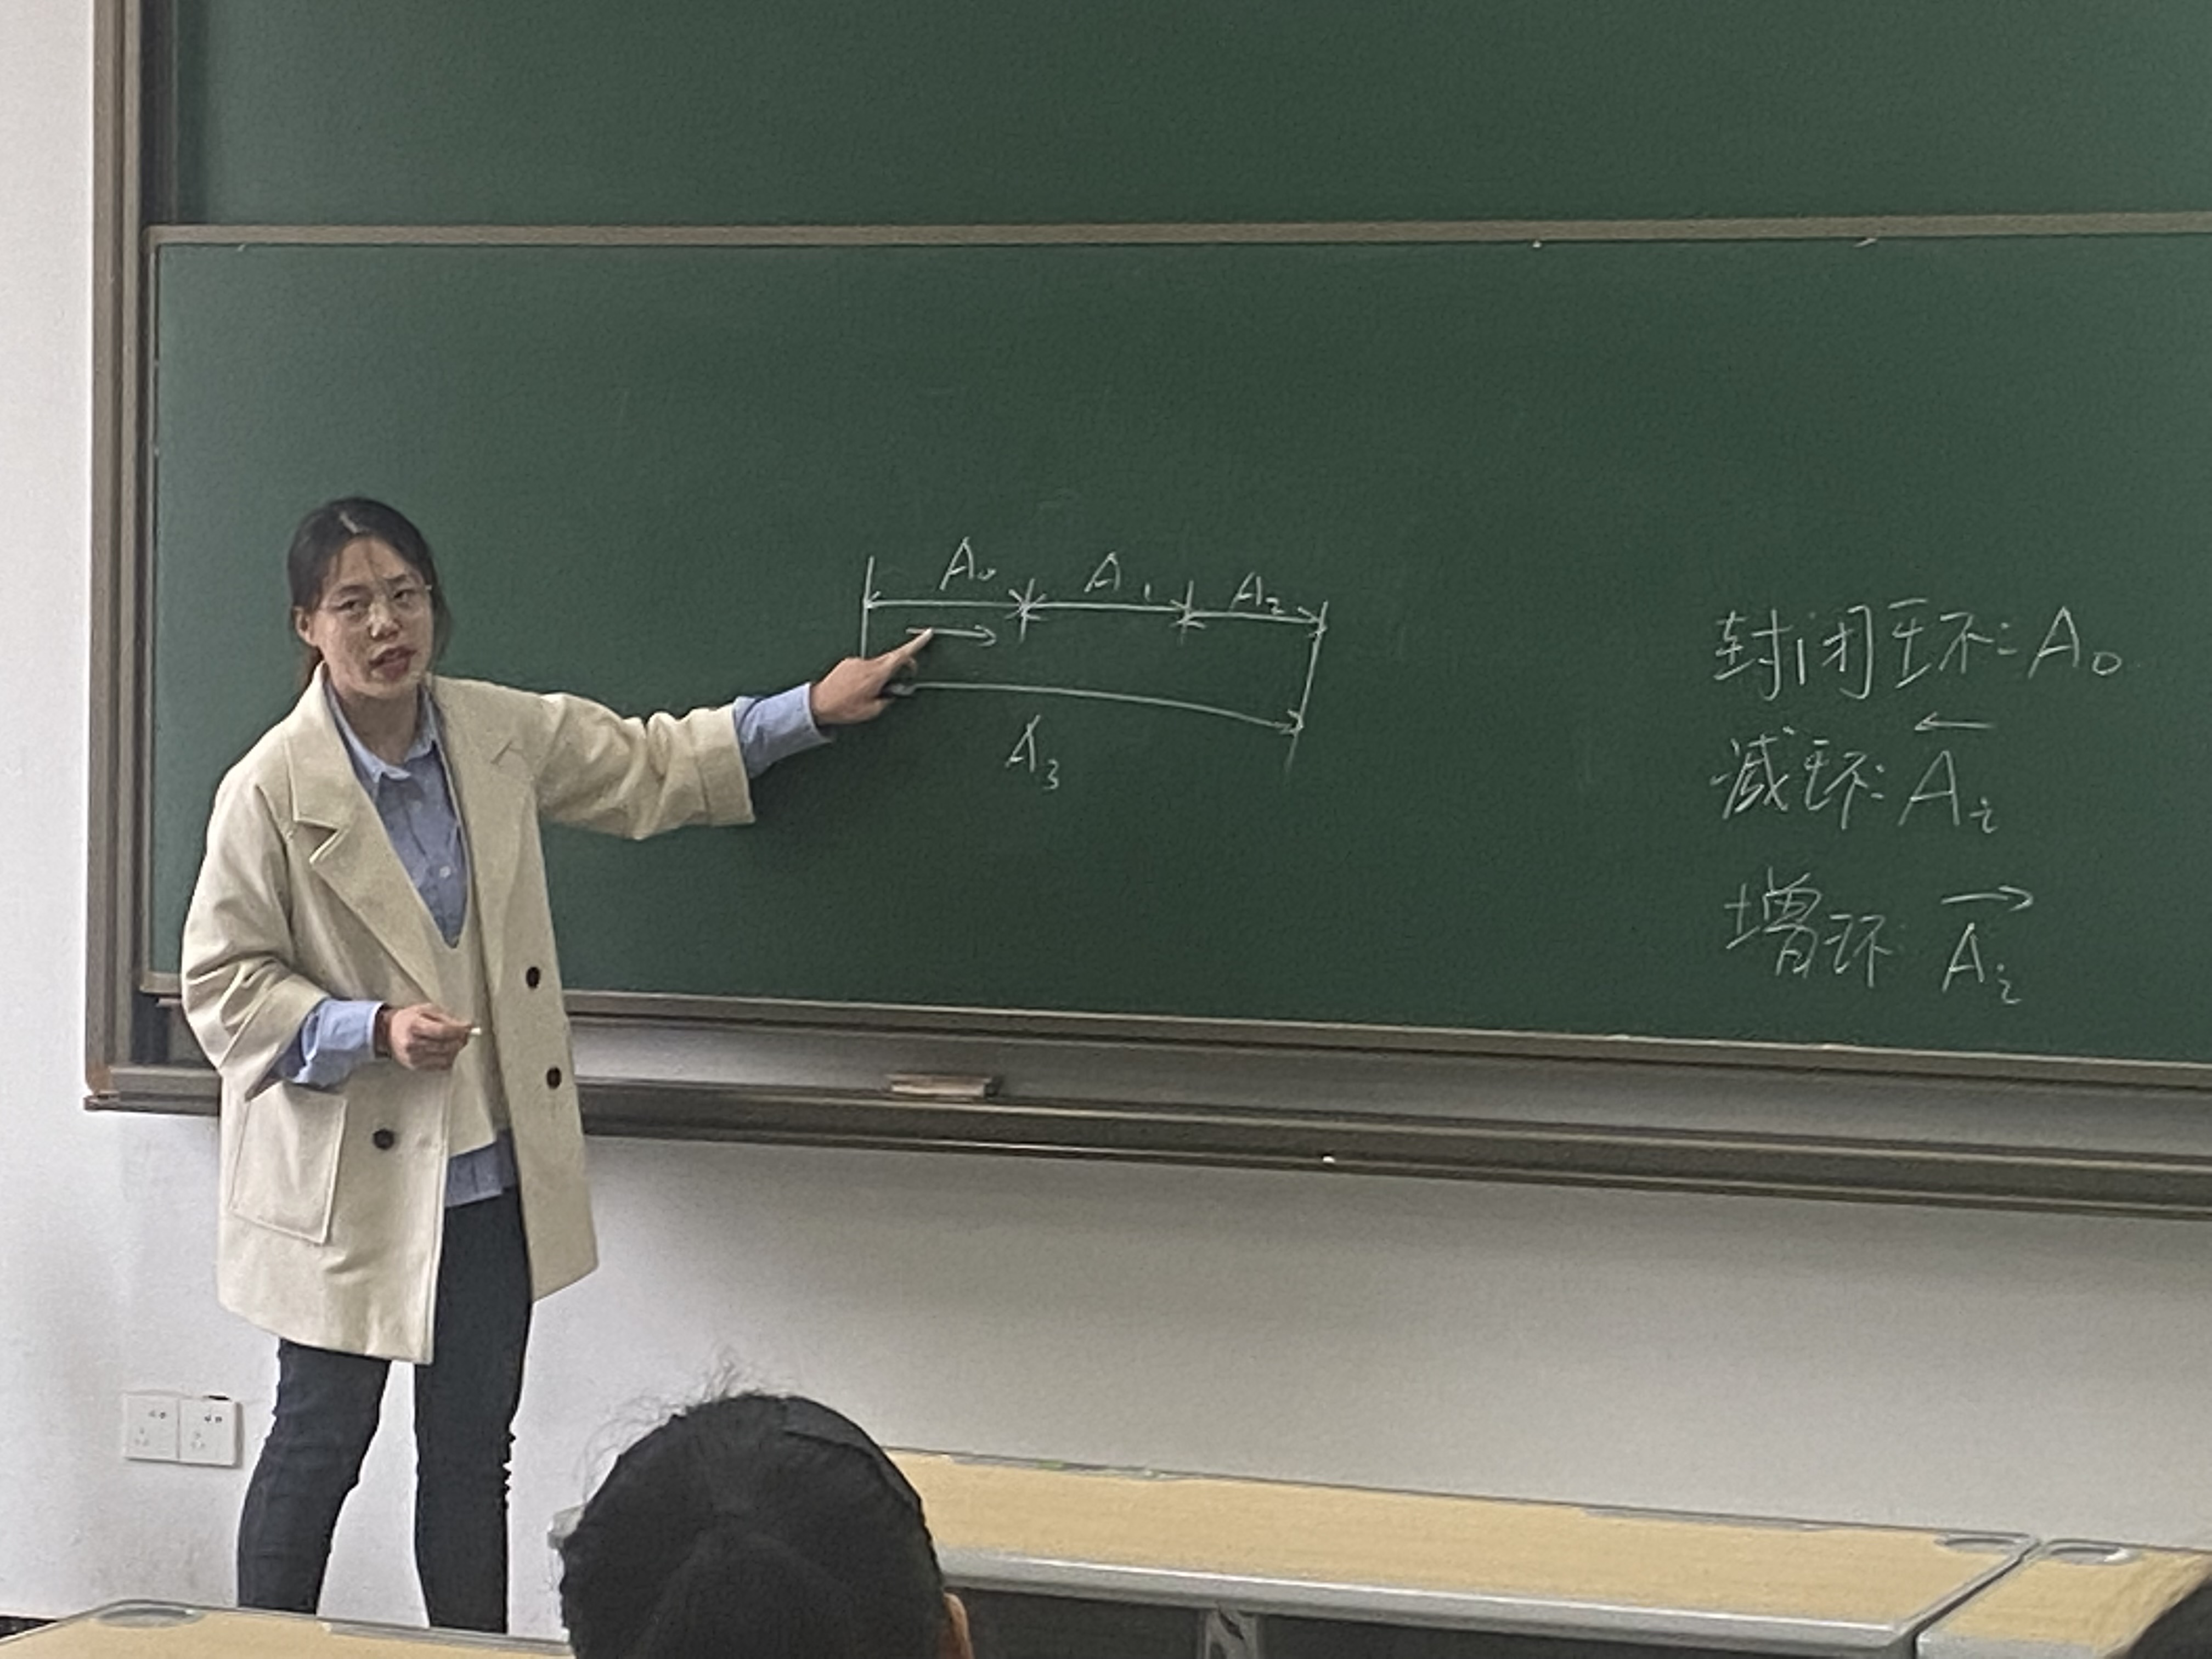 A₀ A₁ A₂
A₃
封闭环: A₀
减环: ←Aᵢ
增环: →Aᵢ